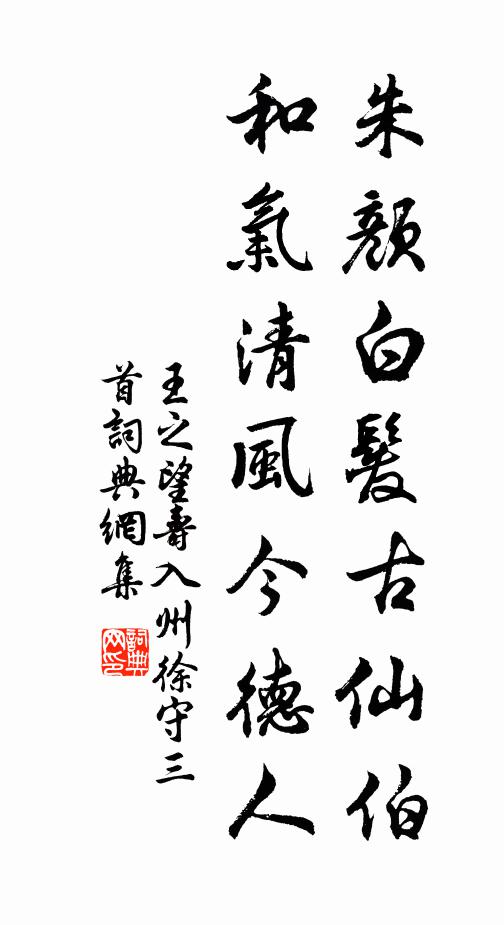 朱顏白髮古仙伯
和氣清風今德人
王之望壽入州徐守三
首詞典網集
詞典
网印